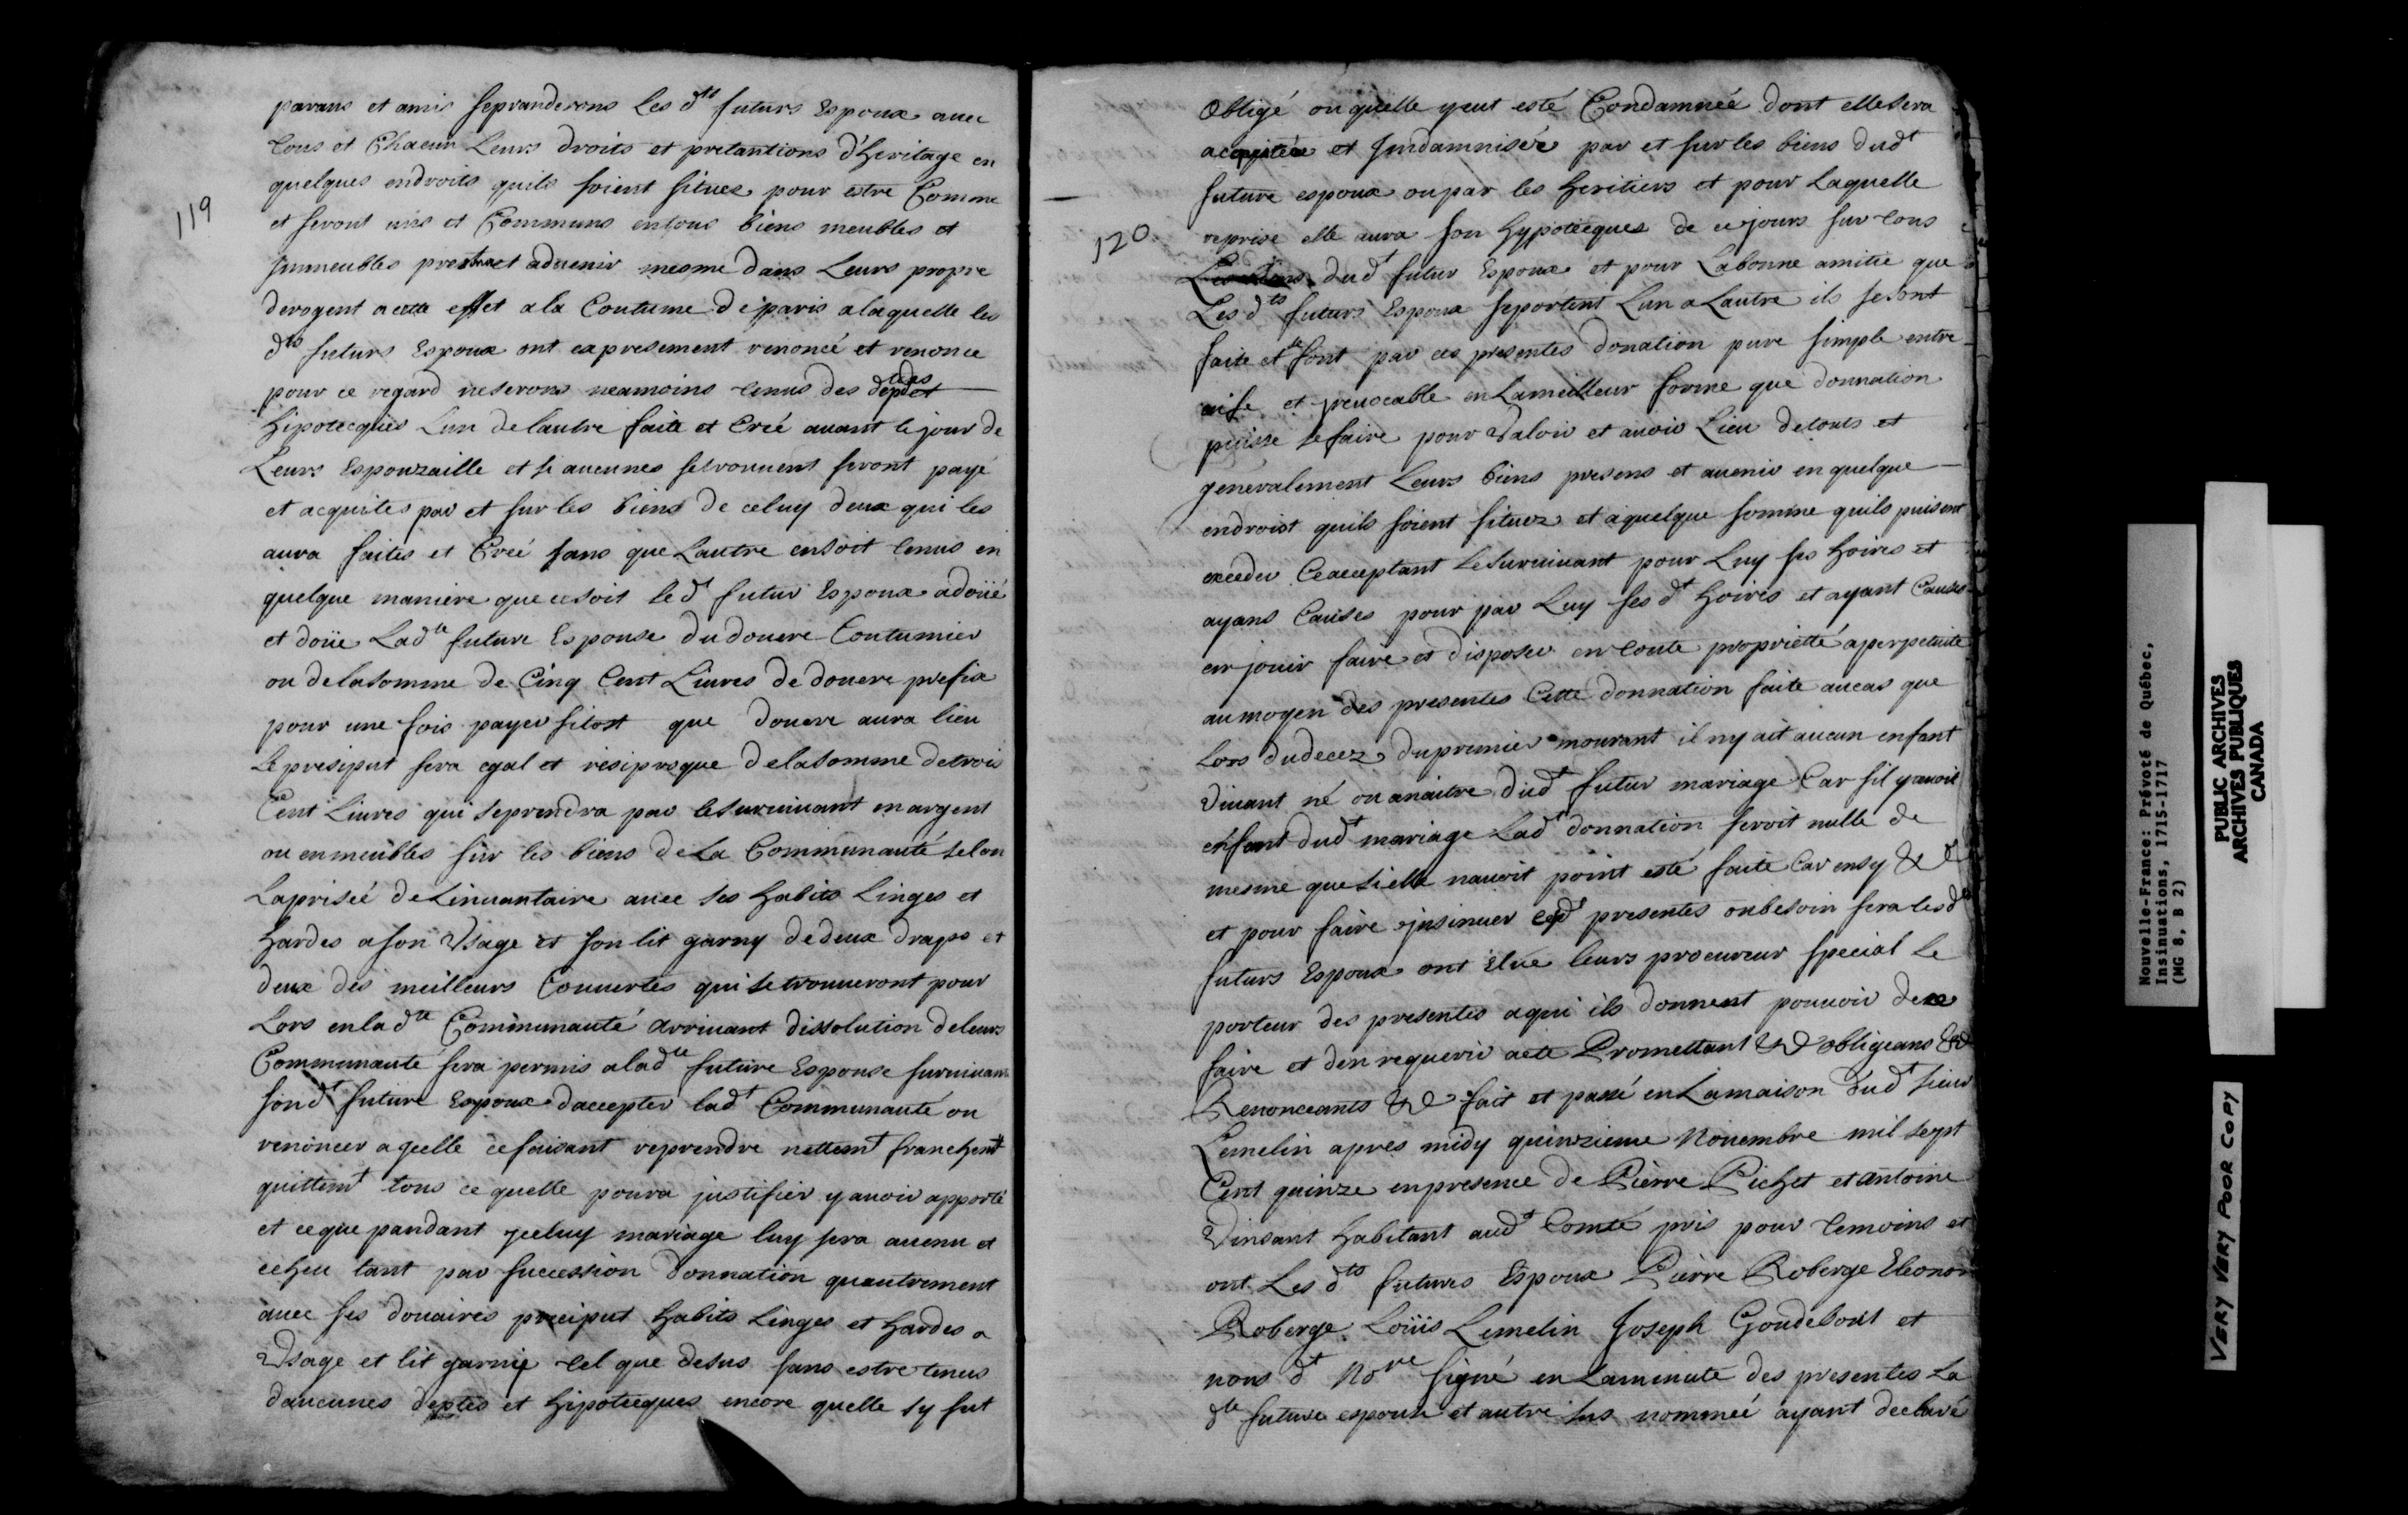 119
parans et amis se prandrons les dts futurs Espoux avec
tous et Chacun Leurs droits et pretantions d'heritage en
quelques endroits quils soient situez pour estre Comme
et seront unis et Communs en tous biens meubles et
Immeubles presens et advenir mesme dans Leurs propre
derogent a cette effet a la Coutume de paris a laquelle les
dts futurs Espoux ont expresement renoncé et renonce
pour ce regard ne serons neamoins tenus des deptes et
hipotecques Lun de lautre faite et Creé avant le jour de
Leurs Espouzaille et si aucunes se trouvent seront payé
et acquites par et sur les biens de celuy deux qui les
aura faites et Creé sans que Lautre en soit tenus en
quelque maniere que ce soit le dt futur Espoux a doüé
et doüe Ladte future Espouse du douere Coutumier
ou de la somme de Cinq Cent Livres de douere prefix
pour une fois payer sitost que douere aura lieu
Le presiput sera egal et resiproque de la somme de trois
Cent Livres qui se prendra par le survivant en argent
ou en meubles sur les biens de La Communauté selon
La priseé de Linvantaire avec ses habits Linges et
hardes a son Usage et son lit garny de deux draps et
deux des meilleurs Couvertes qui se trouveront pour
Lors en ladte Communauté arrivant dissolution de leurs
Communauté sera permis a ladte future Espouse survivant
son dt future Espoux daccepter ladt Communauté ou
renoncer a ycelle ce faisant reprendre nettemt franchemt
quittemt tous ce quelle poura justifier y avoir apporté
et ce que pandant yceluy mariage luy sera avenu et
echeu tant par succession donnation quautrement
avec ses douaires preciput habits Linges et hardes a
Usage et lit garnie tel que desus sans estre tenus
daucunes deptes et hipotecques encore quelle sy fut
120
Obligé ou quelle y eut esté Condamnée dont elle sera
acquiteé et Indamniseé par et sur les biens dudt
future espoux ou par les heritiers et pour Laquelle
reprise elle aura son hypotecques de ce jours sur tous
Les biens dudt futur Espoux et pour La bonne amitié que
Les dts futurs Espoux se portent Lun a Lautre ils se sont
faite et se font par ces presentes donation pure simple entre
vifs et irevocable en La meilleur forme que donnation
puisse se faire pour Valoir et avoir Lieu de touts et
generalement Leurs biens presens et avenir en quelque
endroist quils soient situez et a quelque somme quils puisent
exceder Ce acceptant Le survivant pour Luy ses hoires et
ayans Causes pour par Luy ses dt hoires et ayant Causes
en jouir faire et disposer en toute proprietté a perpetuite
au moyen des presentes Cette donnation faite au cas que
Lors du decez du premier mourant il ny ait aucun enfant
Vivant né ou a naitre dudt futur mariage Car sil y avoit
enfant dudt mariage Ladt donnation seroit nulle de
mesme que si elle navoit point esté faite Car ensy &
et pour faire insinuer cesdt presentes ou besoin sera lesdts
futurs Espoux ont Elüe leurs procureur special le
porteur des presentes a qui ils donnent pouvoir de ce
faire et den requerir acte Promettant &c obligeans &c
Renonceants &c fait et passé en La maison dudt sieur
Lemelin apres midy quinzieme Novembre mil sept
Cent quinze en presence de Pierre Pichet et Antoine
Vinsant habitant audt Comté pris pour temoins et
ont Les dts futures Espoux Pierre Roberge Eleonor
Roberge Loüis Lemelin Joseph Goudebout et
nous dt Nore signé en La minute des presentes La
dte future espouse et autre sus nommeé ayant declaré
Nouvelle-France: Prévoté de Québec,
Insinuations, 1715-1717
(MG 8, B 2)
PUBLIC ARCHIVES
ARCHIVES PUBLIQUES
CANADA
VERY VERY POOR COPY